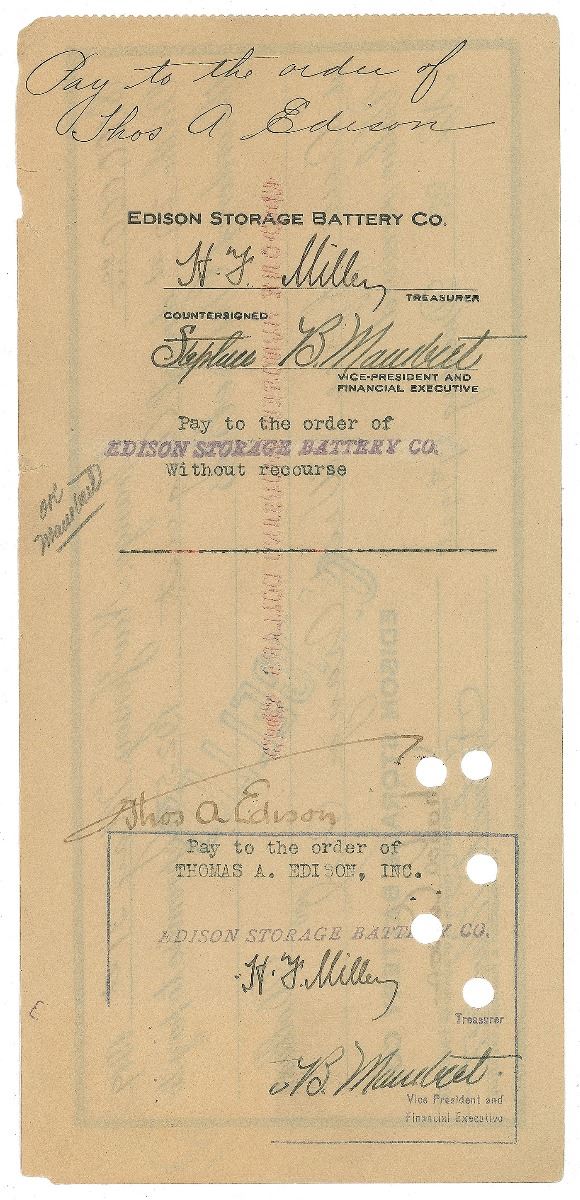 Pay to the order of
Thos A Edison
EDISON STORAGE BATTERY CO.
H. F. Miller
TREASURER
COUNTERSIGNED
Stephen B. Mambert
VICE-PRESIDENT AND
FINANCIAL EXECUTIVE
Pay to the order of
EDISON STORAGE BATTERY CO.
Without recourse
OK
Mambert
Thos A Edison
Pay to the order of
THOMAS A. EDISON, INC.
EDISON STORAGE BATTERY CO.
H. F. Miller
Treasurer
Mambert
Vice President and
Financial Executive
E